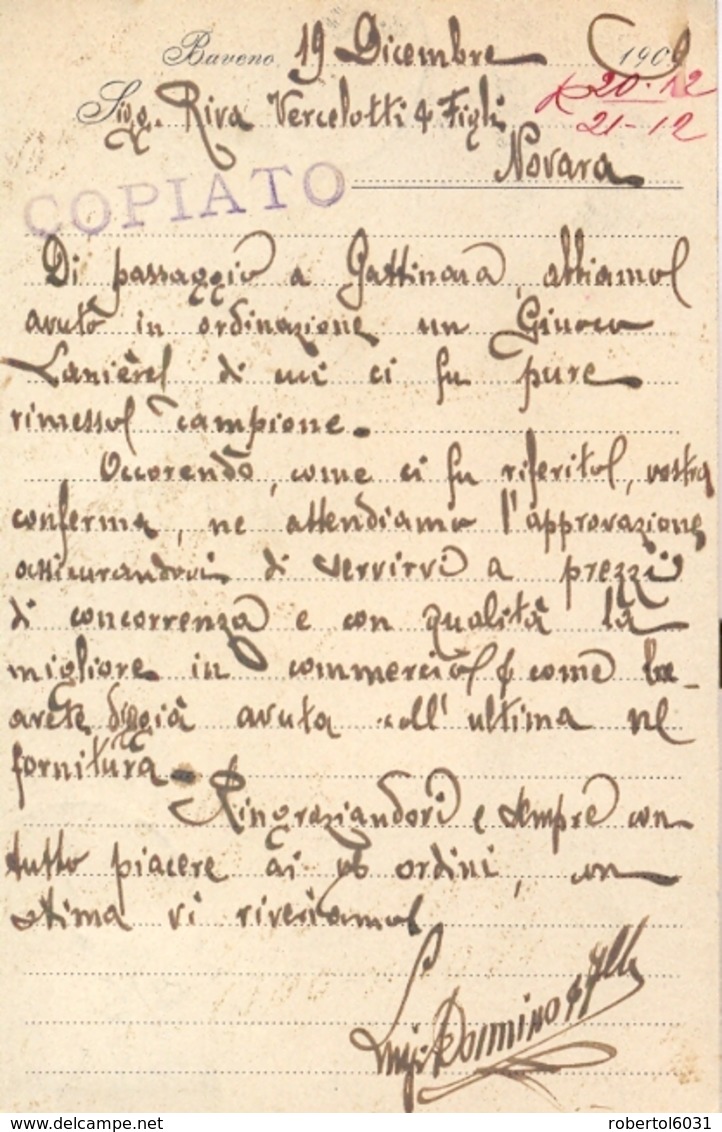 Baveno 19 Dicembre 1909
Sigg. Riva Vercelotti & Figli
20-12
21-12
Novara
COPIATO
Di passaggio a Gattinara, abbiamo
avuto in ordinazione un Giuoco
Laniere di cui ci fu pure
rimesso campione.
Occorendo, come ci fu riferito, vostra
conferma, ne attendiamo l'approvazione
assicurandovi di servirvi a prezzi
di concorrenza e con qualità la
migliore in commercio & come la
avete diggià avuta all'ultima
fornitura.
Ringraziandovi e sempre con
tutto piacere ai ordini, con
stima vi riveriamo
robertol6031
delcampe.net